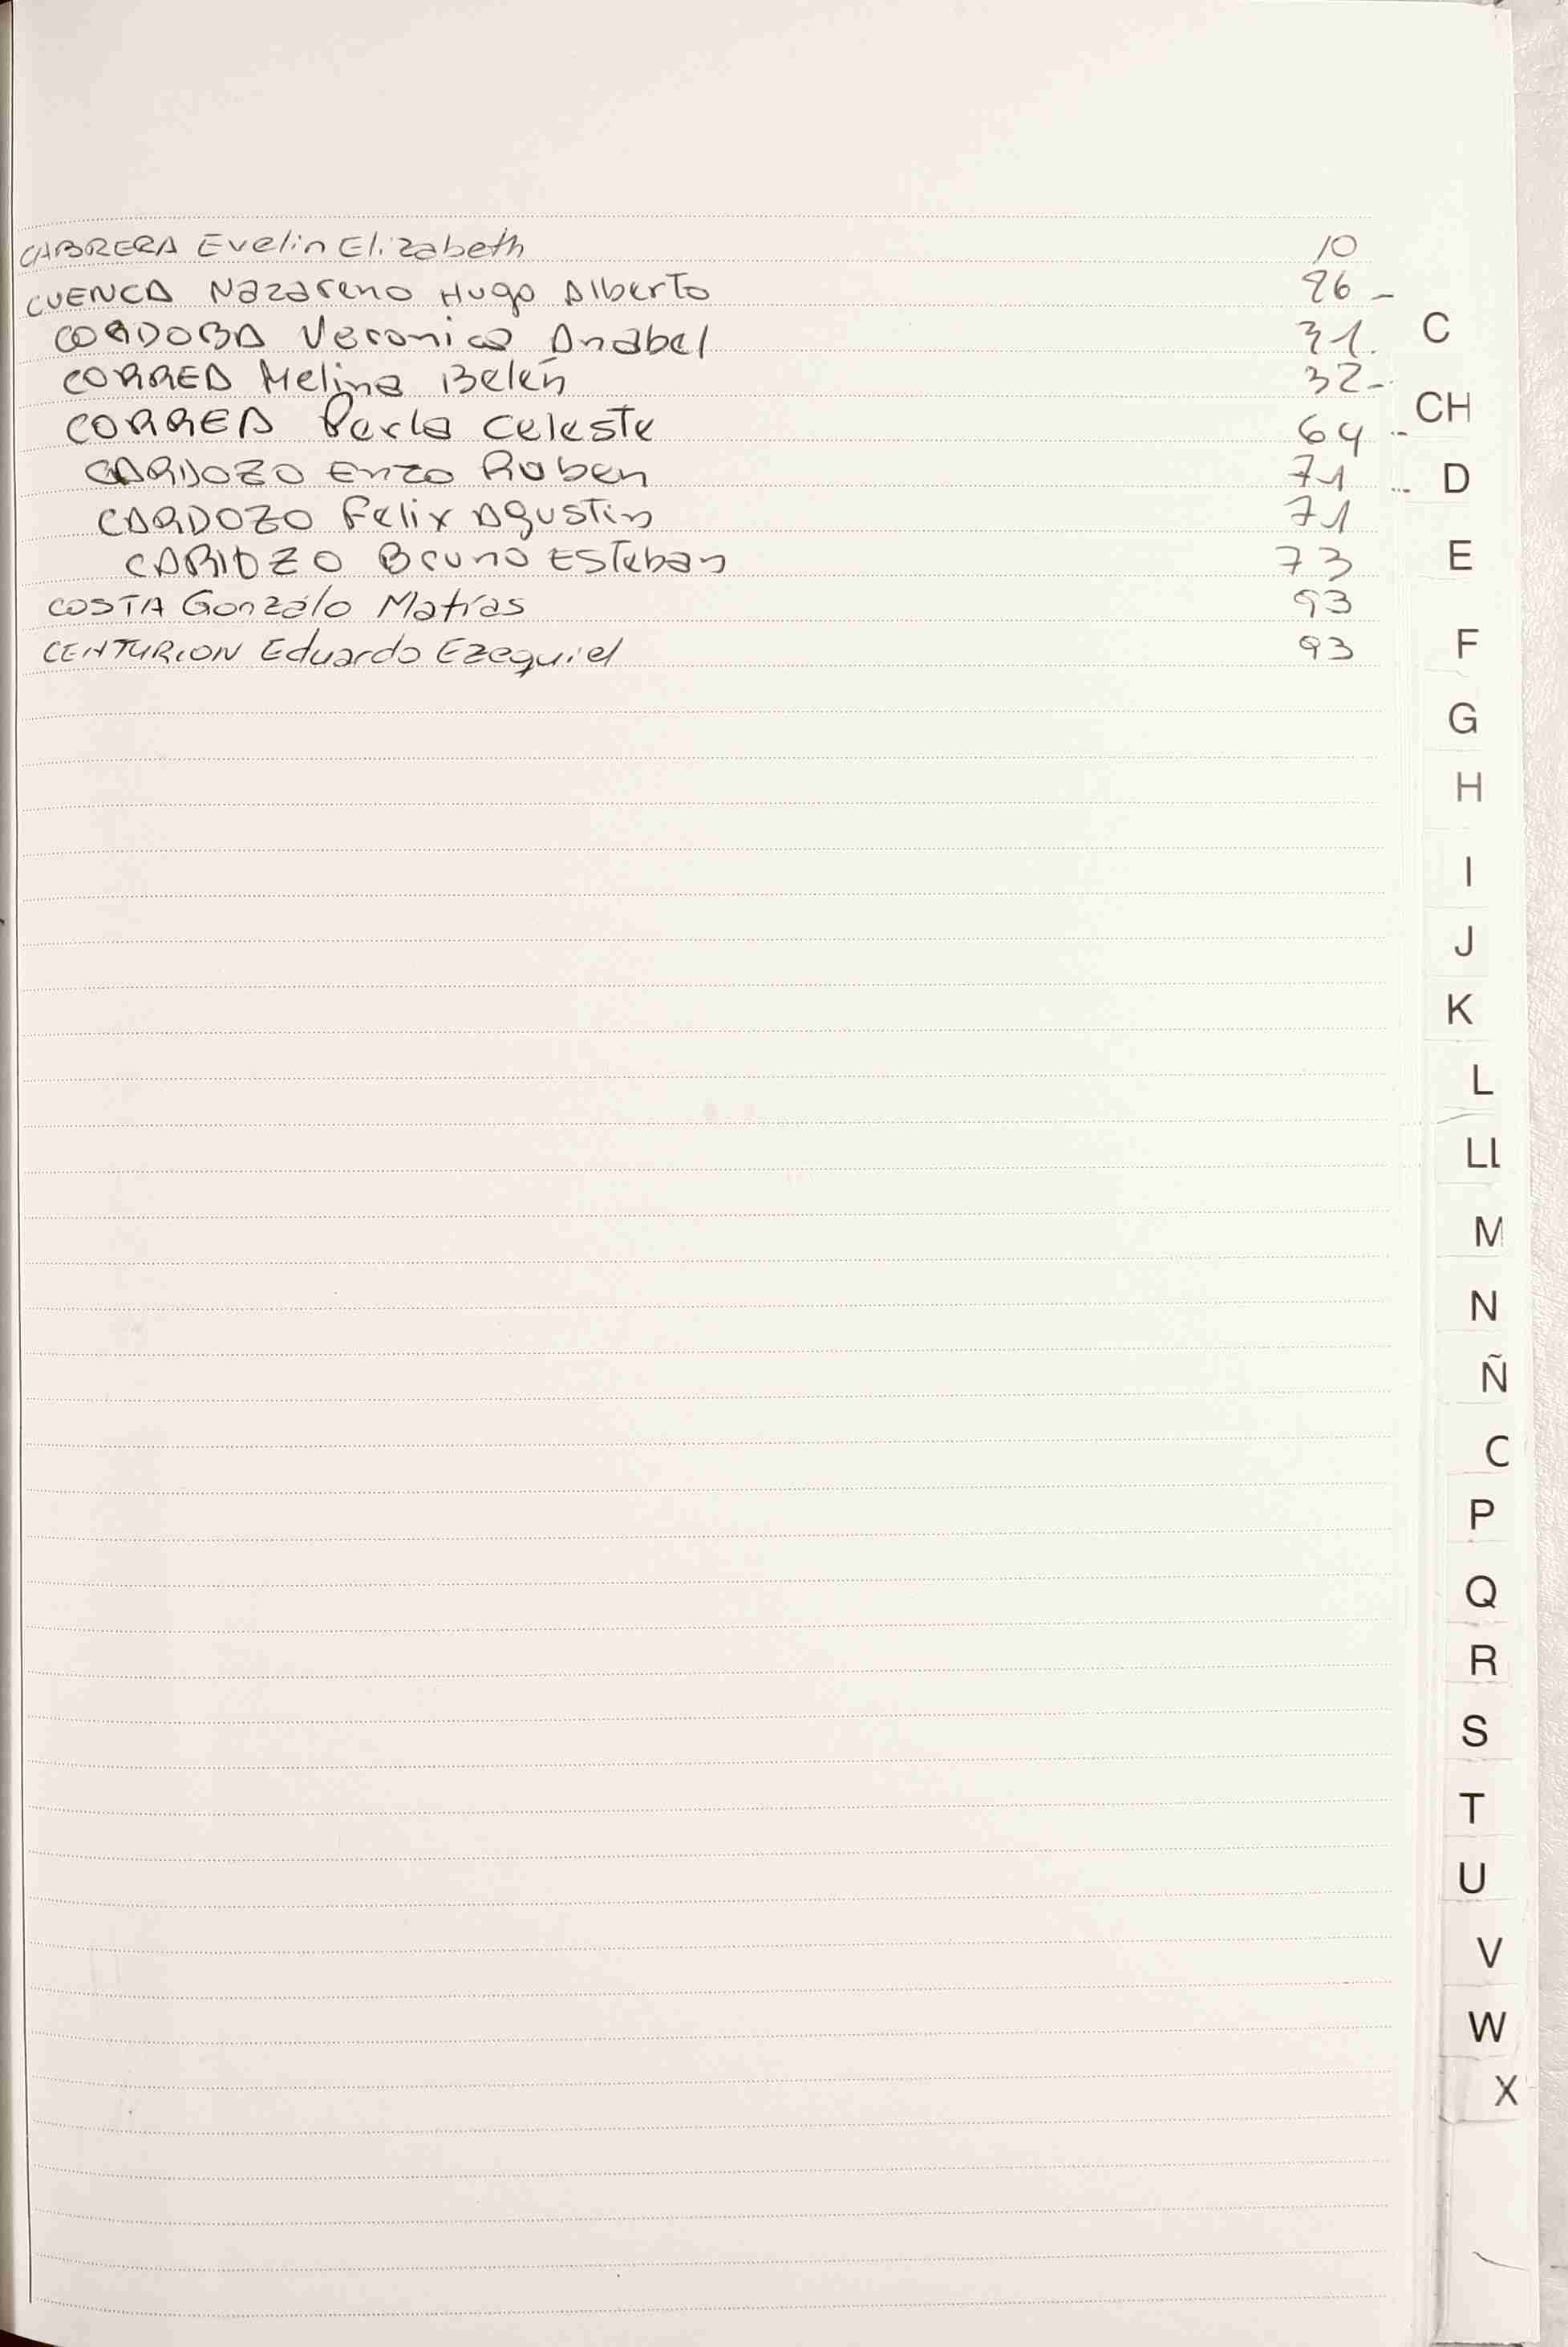 CABRERA Evelin Elizabeth 10
CUENCA Nazareno Hugo Alberto 26 -
CORDOBA Veronica Anabel 31.
CORREA Melina Belén 32-
CORREA Perla Celeste 64 -
CARDOZO Enzo Ruben 71 -
CARDOZO Felix Agustin 71
CARDOZO Bruno Esteban 73
COSTA Gonzálo Matías 93
CENTURION Eduardo Ezequiel 93
C
CH
D
E
F
G
H
I
J
K
L
LL
M
N
Ñ
O
P
Q
R
S
T
U
V
W
X